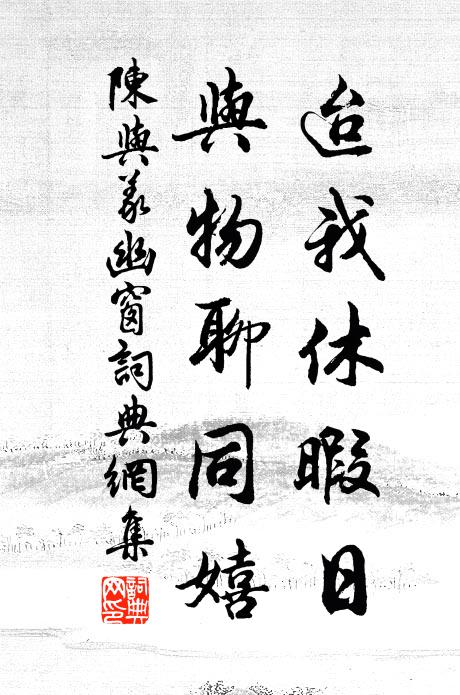 迨我休暇日
與物聊同嬉
陳與義幽窗詞典網集
詞典网印